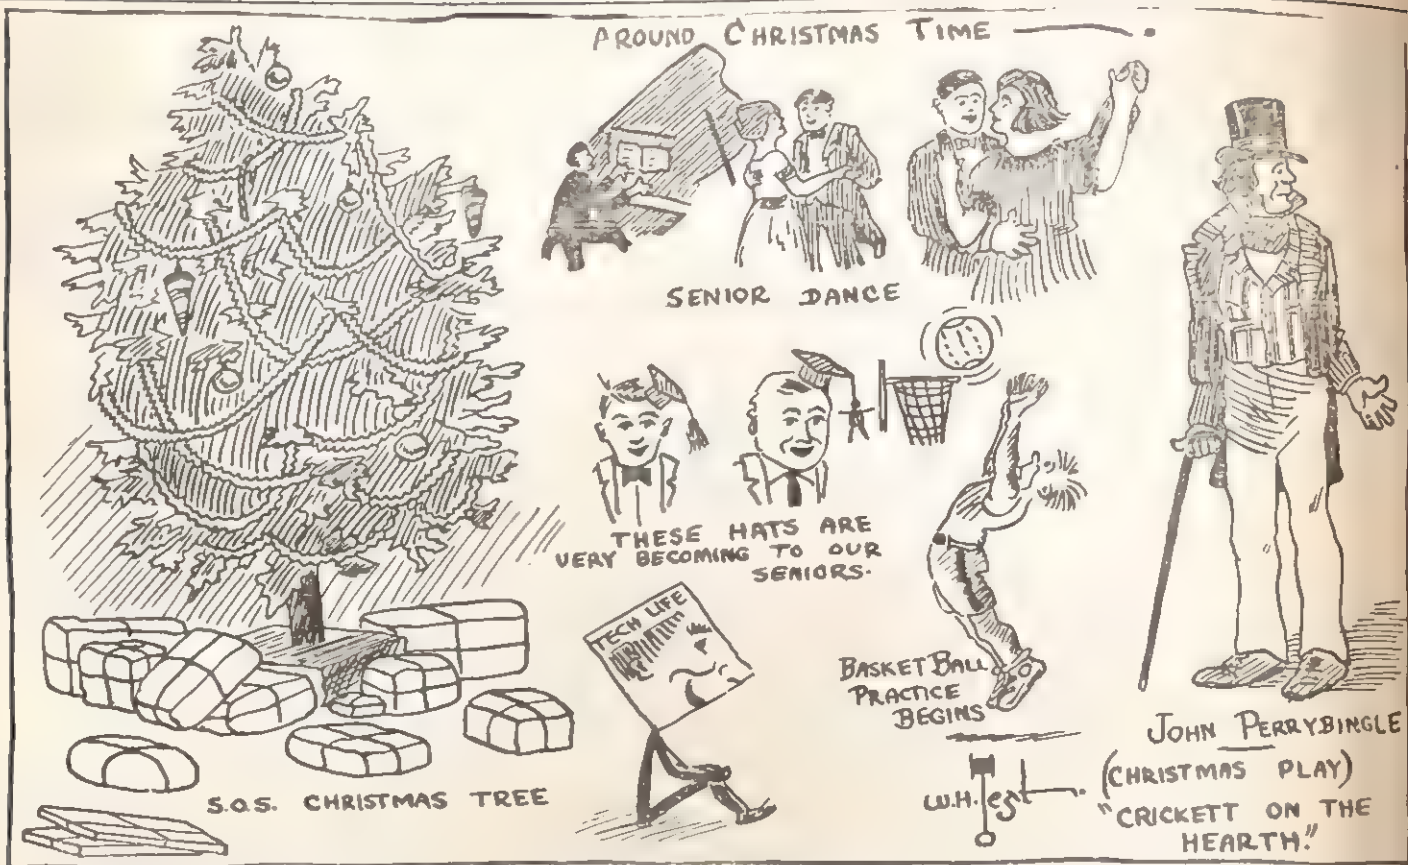 AROUND CHRISTMAS TIME
SENIOR DANCE
THESE HATS ARE
VERY BECOMING TO OUR
SENIORS.
TECH LIFE
BASKET BALL
PRACTICE
BEGINS
S.O.S. CHRISTMAS TREE
W.H.
JOHN PERRYBINGLE
(CHRISTMAS PLAY)
"CRICKETT ON THE
HEARTH."